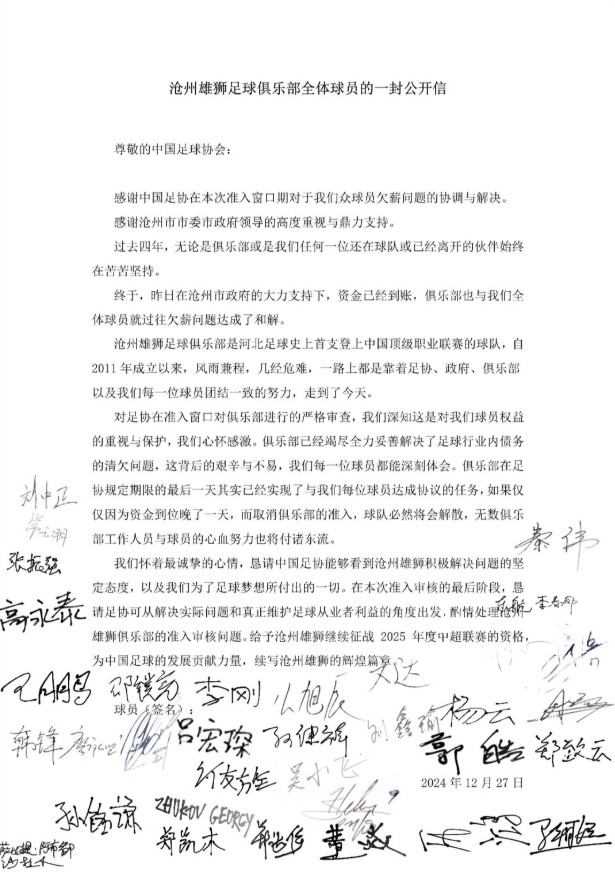 沧州雄狮足球俱乐部全体球员的一封公开信
尊敬的中国足球协会：
感谢中国足协在本次准入窗口期对于我们众球员欠薪问题的协调与解决。
感谢沧州市市委市政府领导的高度重视与鼎力支持。
过去四年，无论是俱乐部或是我们任何一位还在球队或已经离开的伙伴始终
在苦苦坚持。
终于，昨日在沧州市政府的大力支持下，资金已经到账，俱乐部也与我们全
体球员就过往欠薪问题达成了和解。
沧州雄狮足球俱乐部是河北足球史上首支登上中国顶级职业联赛的球队，自
2011年成立以来，风雨兼程，几经危难，一路上都是靠着足协、政府、俱乐部
以及我们每一位球员团结一致的努力，走到了今天。
对足协在准入窗口对俱乐部进行的严格审查，我们深知这是对我们球员权益
的重视与保护，我们心怀感激。俱乐部已经竭尽全力妥善解决了足球行业内债务
的清欠问题，这背后的艰辛与不易，我们每一位球员都能深刻体会。俱乐部在足
协规定期限的最后一天其实已经实现了与我们每位球员达成协议的任务，如果仅
仅因为资金到位晚了一天，而取消俱乐部的准入，球队必然将会解散，无数俱乐
部工作人员与球员的心血努力也将付诸东流。
我们怀着最诚挚的心情，恳请中国足协能够看到沧州雄狮积极解决问题的
坚定态度，以及我们为了足球梦想所付出的一切。在本次准入审核的最后阶段，恳
请足协可从解决实际问题和真正维护足球从业者利益的角度出发，酌情处理沧州
雄狮俱乐部的准入审核问题。给予沧州雄狮继续征战 2025 年度中超联赛的资格，
为中国足球的发展贡献力量，续写沧州雄狮的辉煌篇章。
球员（签名）：
刘中正
张振强
高永泰
秦伟
李刚
杨云
韩锋
吕宏琛
刘鑫瑜
郭皓
郑致云
吴小飞
2024年12月27日
ZHUKOV GEORGY
郑凯木